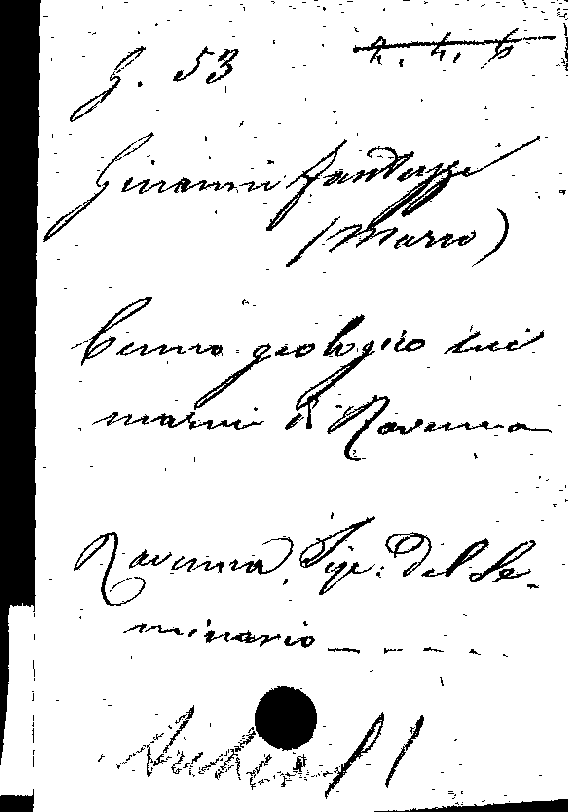 G. 53 4. 4. 6
Ginanni Fantuzzi
(Marco)
Cenno geologico sui
marmi di Ravenna
Ravenna, Tip: del Se-
minario